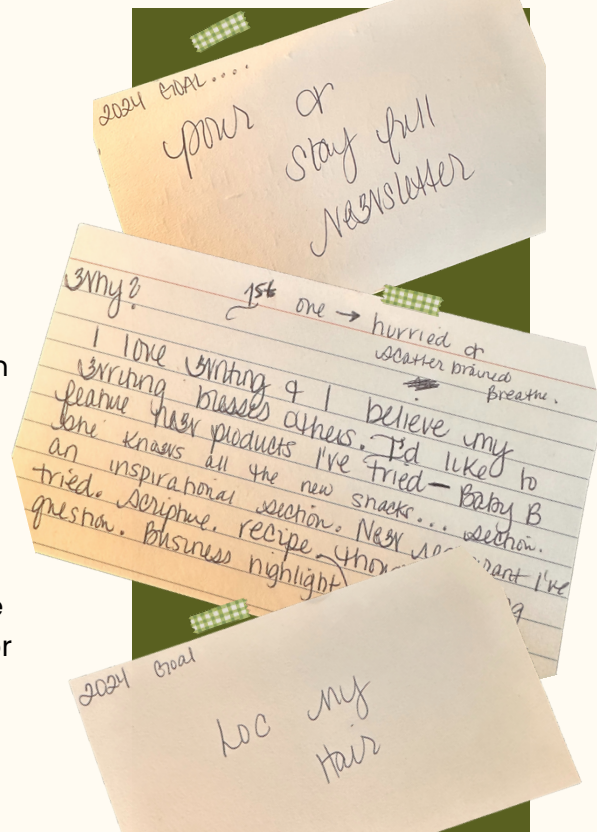 2024 GOAL....
pour or
stay full
Newsletter
Why?
1st one → hurried or
scatter brained
Breathe.
I love writing & I believe my
writing blesses others. I'd like to
feature new products I've tried - Baby B
she knows all the new snacks... section.
an inspirational section. New
tried. Scripture. recipe
question. Business highlight
I've
2024 Goal
Loc my
Hair